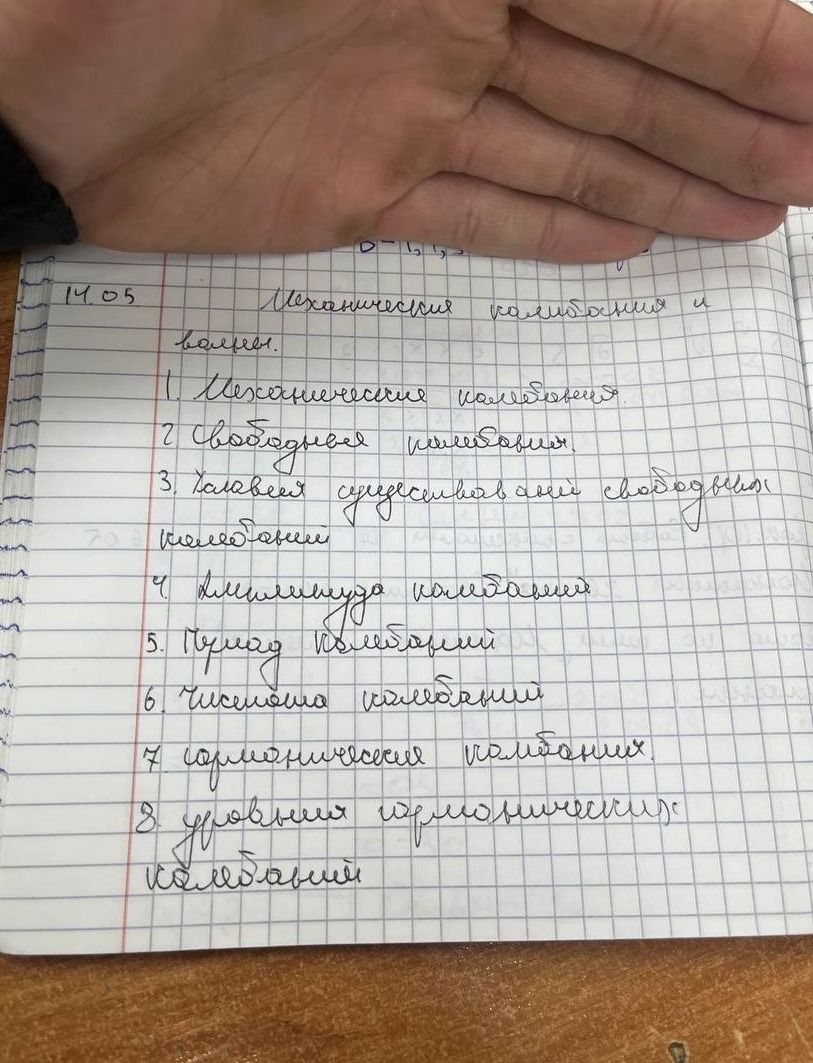 14.05 Механические колибания и
волны.
1. Механические колебания.
2 Свободные колебания.
3. Условия существований свободных
колебаний
4. Амплитуда колебаний
5. Период колебаний
6. Чистота колебаний
7 гармонические колебания.
8. уровния гармонических
колебаний